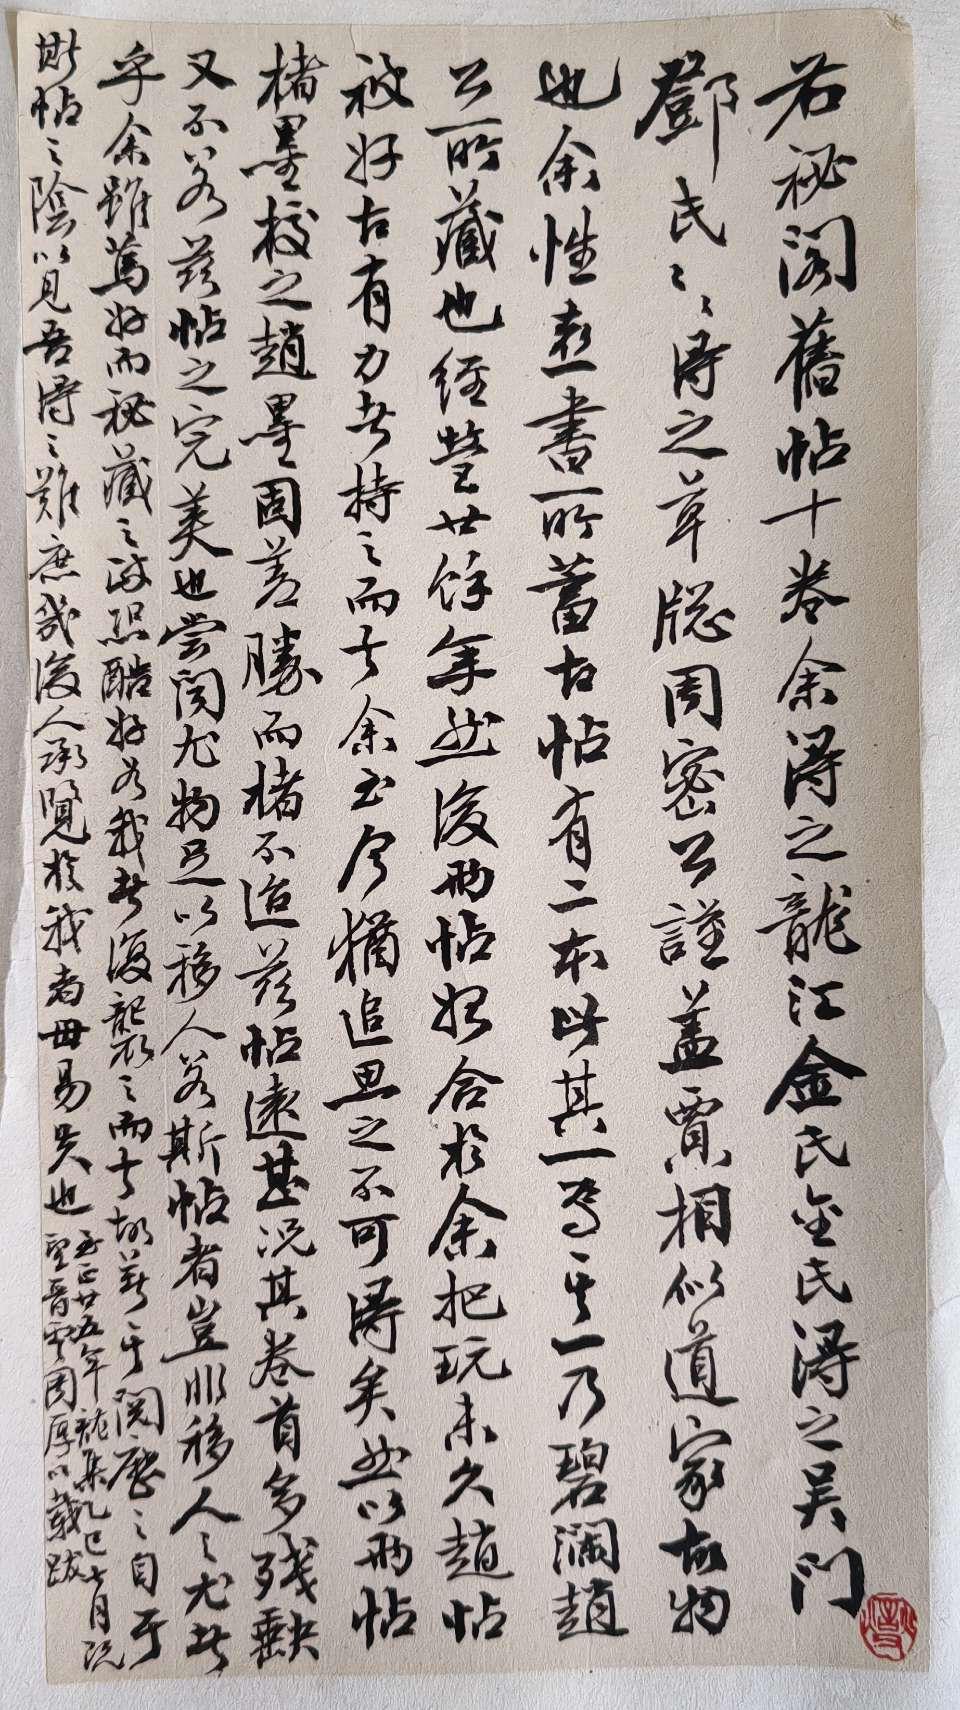 右秘阁旧帖十卷余得之龍江金氏金氏得之吴門
鄧氏々得之草牕周密公謹盖賈相似道家故物
也余性喜書所蓄古帖有二本此其一焉其一乃碧瀾趙
公所藏也经营廿餘年然後两帖始合於余把玩未久趙帖
被好古有力者持之而去余至今犹追思之不可得矣然以两帖
楮墨校之趙墨固差勝而楮不逮兹帖遠甚况其卷首多残缺
又不若兹帖之完美也尝闻尤物足以移人若斯帖者豈非移人之尤者
乎余雖篤好而秘藏之政恐酷好如我者復襲之而去故著其阅歷之自于
斯帖之陰以見吾得之難庶幾後人承覽於我者毋易失也
至正廿五年龍集乙巳七月既
望晋雲周厚以載跋